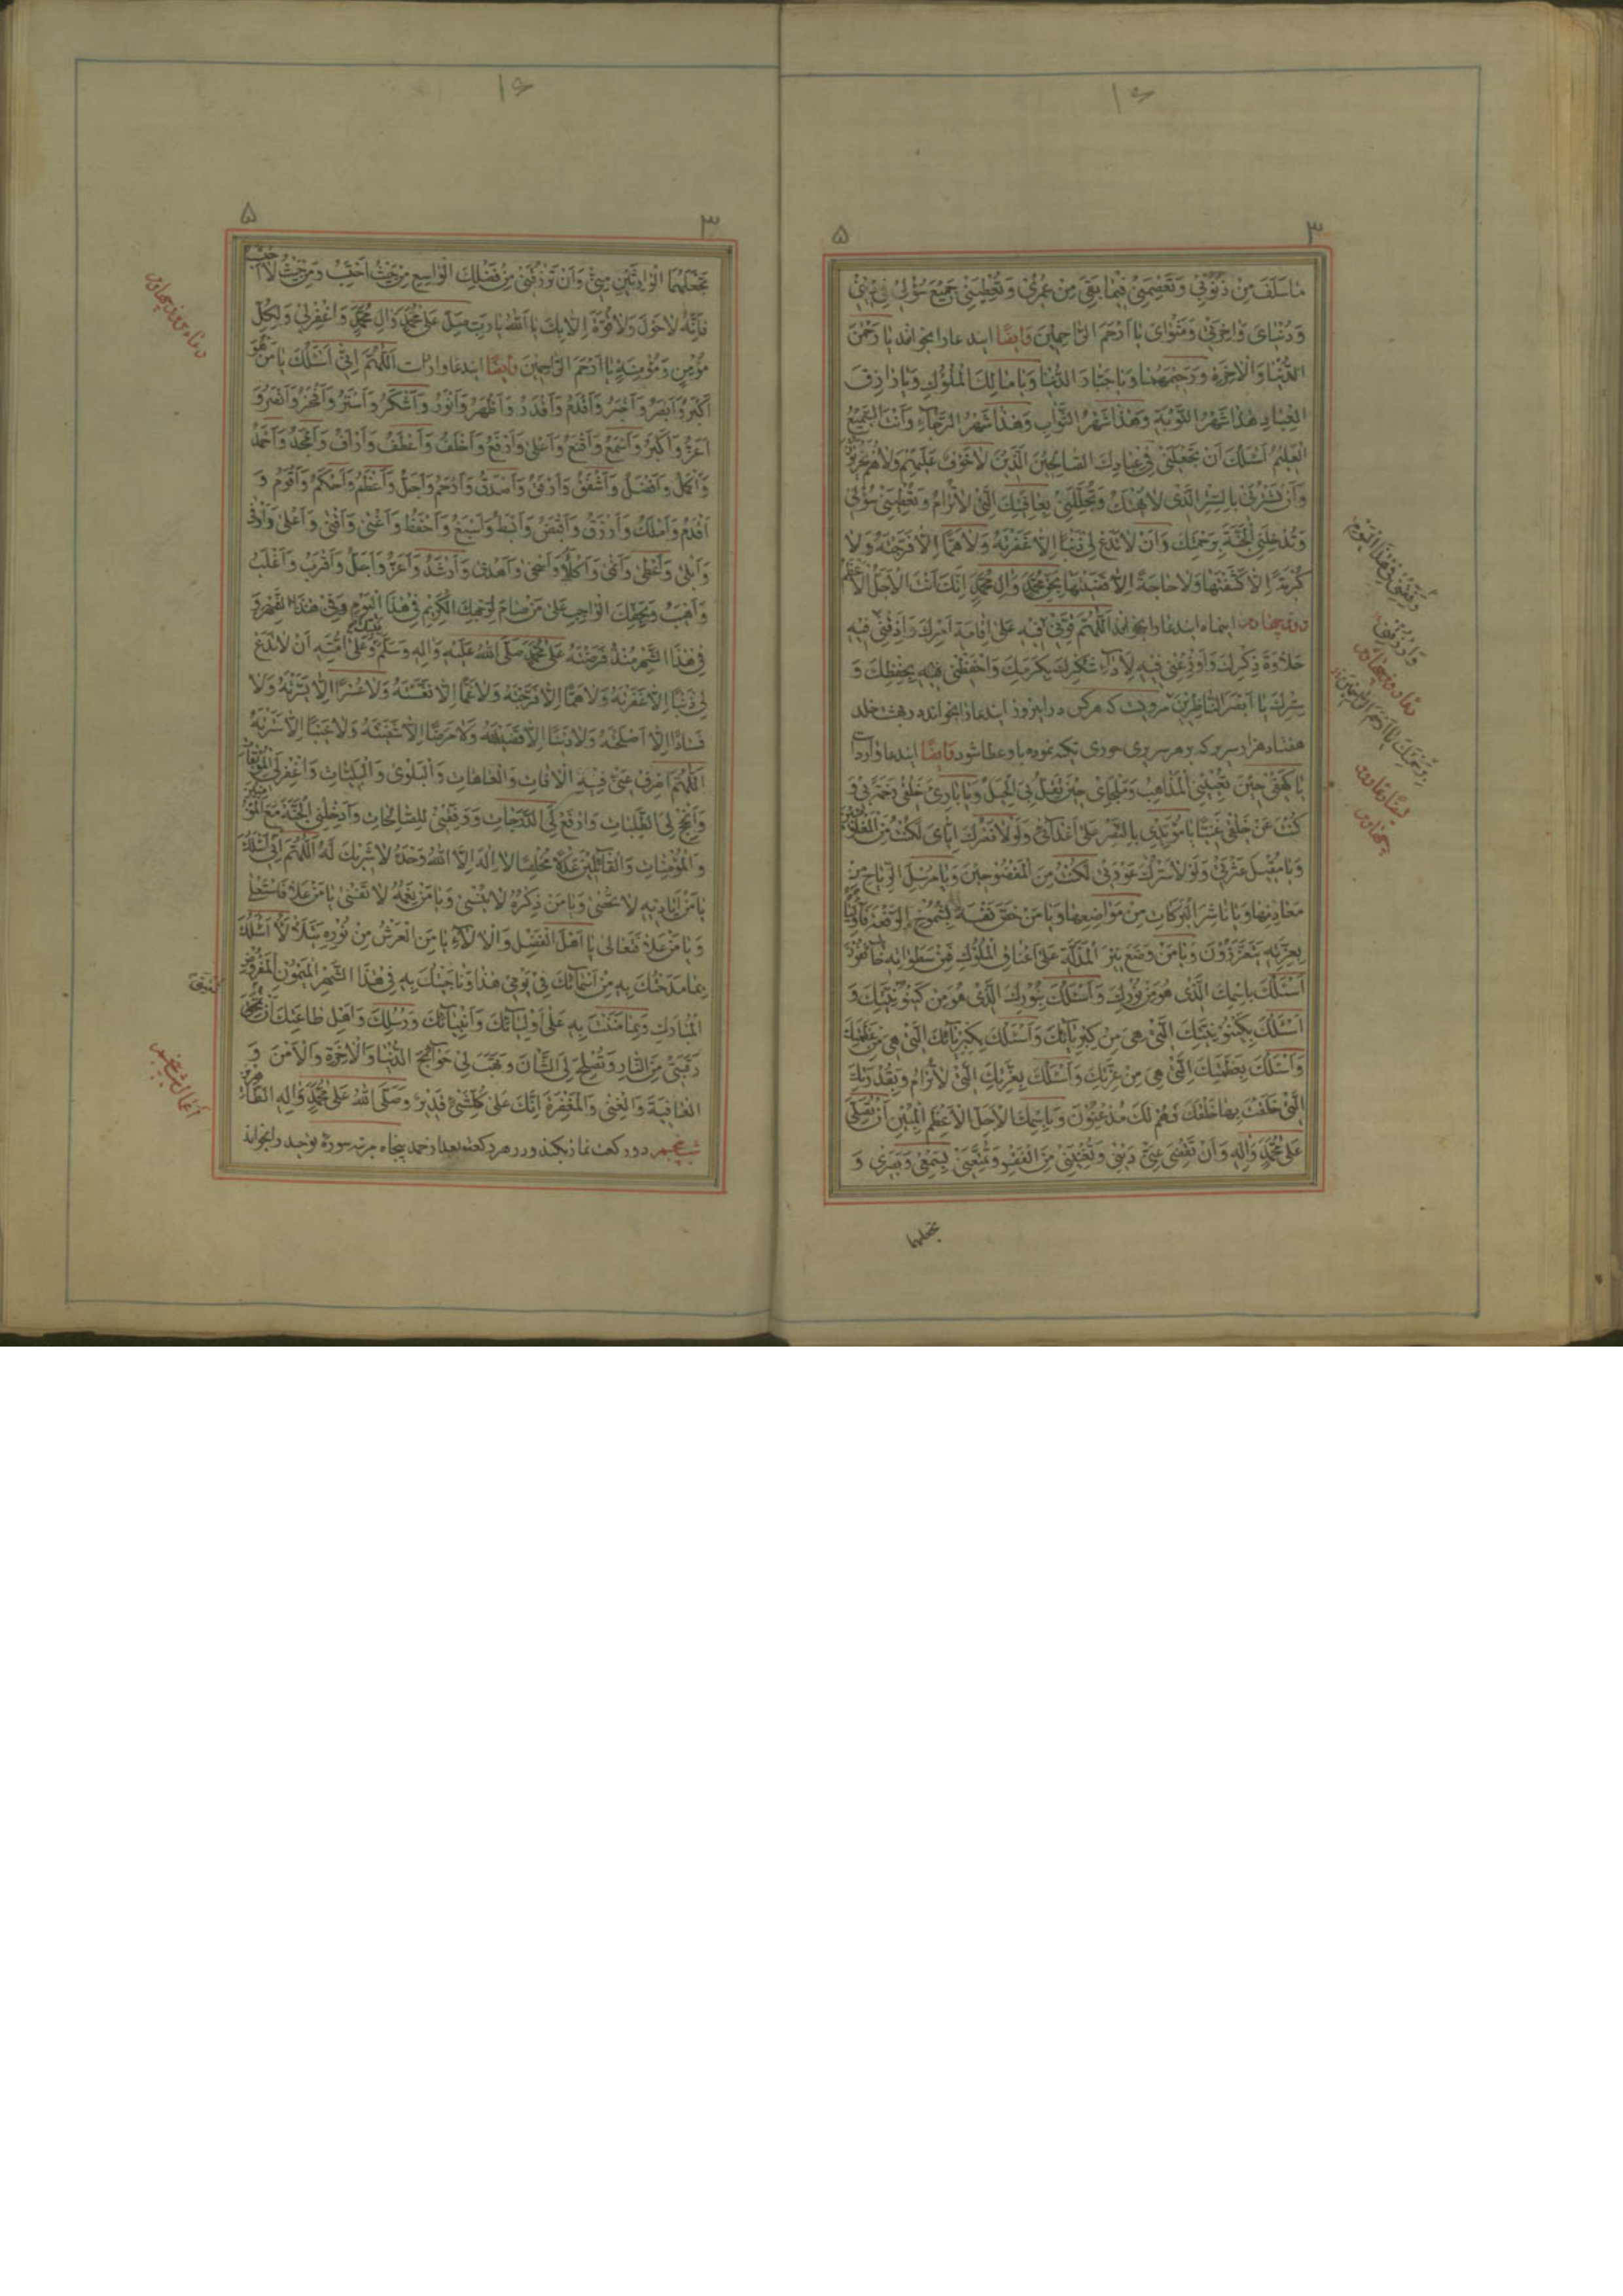 ما سَلَفَ مِنْ ذُنُوبِي وَتَعْصِمَنِي فِيمَا بَقِيَ مِنْ عُمْرِي وَتُعْطِيَنِي جَمِيعَ سُؤْلِي فِي دِينِي
وَدُنْيَايَ وَاخِرَتِي وَمَثْوَايَ يَا اَرْحَمَ الرَّاحِمِينَ وايضًا ایندعا را بخواند يَا رَحْمٰنَ
الدُّنْيَا وَالْاخِرَةِ وَرَحِيمَهُمَا وَيَا جَبَّارَ الدُّنْيَا وَيَا مَالِكَ الْمُلُوكِ وَيَا رَازِقَ
الْعِبَادِ هٰذَا شَهْرُ التَّوْبَةِ وَهٰذَا شَهْرُ الثَّوَابِ وَهٰذَا شَهْرُ الرَّجَاءِ وَاَنْتَ السَّمِيعُ
الْعَلِيمُ اَسْئَلُكَ اَنْ تَجْعَلَنِي فِي عِبَادِكَ الصَّالِحِينَ الَّذِينَ لَا خَوْفٌ عَلَيْهِمْ وَلَا هُمْ يَحْزَنُونَ
وَاَنْ تَسْتُرَنِي بِالسِّتْرِ الَّذِي لَا يُهْتَكُ وَتُجَلِّلَنِي بِعَافِيَتِكَ الَّتِي لَا تُرَامُ وَتُعْطِيَنِي سُؤْلِي
وَتُدْخِلَنِي الْجَنَّةَ بِرَحْمَتِكَ وَاَنْ لَا تَدَعَ لِي ذَنْبًا اِلَّا غَفَرْتَهُ وَلَا هَمًّا اِلَّا فَرَّجْتَهُ وَلَا
كُرْبَةً اِلَّا كَشَفْتَهَا وَلَا حَاجَةً اِلَّا قَضَيْتَهَا بِحَقِّ مُحَمَّدٍ وَالِ مُحَمَّدٍ اِنَّكَ اَنْتَ الْاَجَلُّ الْاَعْظَمُ
روز چهارم اینماه ایندعا را بخواند اَللّٰهُمَّ قَوِّنِي فِيهِ عَلٰى اِقَامَةِ اَمْرِكَ وَاَذِقْنِي فِيهِ
حَلَاوَةَ ذِكْرِكَ وَاَوْزِعْنِي فِيهِ لِاَدَاءِ شُكْرِكَ بِكَرَمِكَ وَاحْفَظْنِي فِيهِ بِحِفْظِكَ وَ
سِتْرِكَ يَا اَبْصَرَ النَّاظِرِينَ مرویست که هرکس در اینروز ایندعا را بخواند در بهشت خلد
هفتاد هزار سریر که بر هر سریری حوری تکیه نموده باو عطا شود وایضًا ایندعا وارد است
يَا كَهْفِي حِينَ تُعْيِينِي الْمَذَاهِبُ وَمَلْجَايَ حِينَ تَقِلُّ بِي الْحِيَلُ وَيَا بَارِئَ خَلْقِي رَحْمَةً بِي وَ
كُنْتَ عَنْ خَلْقِي غَنِيًّا يَا مُؤَيِّدِي بِالنَّصْرِ عَلٰى اَعْدَائِي وَلَوْلَا نَصْرُكَ اِيَّايَ لَكُنْتُ مِنَ الْمَغْلُوبِينَ
وَيَا مُقِيلَ عَثْرَتِي وَلَوْلَا سَتْرُكَ عَوْرَتِي لَكُنْتُ مِنَ الْمَفْضُوحِينَ وَيَا مُرْسِلَ الرِّيَاحِ مِنْ
مَعَادِنِهَا وَيَا نَاشِرَ الْبَرَكَاتِ مِنْ مَوَاضِعِهَا وَيَا مَنْ خَصَّ نَفْسَهُ بِشُمُوخِ الرِّفْعَةِ
بِعِزَّتِهِ يَتَعَزَّزُونَ وَيَا مَنْ وَضَعَ نِيرَ الْمَذَلَّةِ عَلٰى اَعْنَاقِ الْمُلُوكِ فَهُمْ مِنْ سَطَوَاتِهِ خَائِفُونَ
اَسْئَلُكَ بِاسْمِكَ الَّذِي هُوَ مِنْ نُورِكَ وَاَسْئَلُكَ بِنُورِكَ الَّذِي هُوَ مِنْ كَيْنُونِيَّتِكَ وَ
اَسْئَلُكَ بِكَيْنُونِيَّتِكَ الَّتِي هِيَ مِنْ كِبْرِيَائِكَ وَاَسْئَلُكَ بِكِبْرِيَائِكَ الَّتِي هِيَ مِنْ عَظَمَتِكَ
وَاَسْئَلُكَ بِعَظَمَتِكَ الَّتِي هِيَ مِنْ عِزَّتِكَ وَاَسْئَلُكَ بِعِزَّتِكَ الَّتِي لَا تُرَامُ وَبِقُدْرَتِكَ
الَّتِي خَلَقْتَ بِهَا خَلْقَكَ فَهُمْ لَكَ مُذْعِنُونَ وَبِاسْمِكَ الْاَجَلِّ الْاَعْظَمِ الْمُبِينِ اَنْ تُصَلِّيَ
عَلٰى مُحَمَّدٍ وَالِهِ وَاَنْ تَقْضِيَ عَنِّي دَيْنِي وَتُغْنِيَنِي مِنَ الْفَقْرِ وَتُمَتِّعَنِي بِسَمْعِي وَبَصَرِي وَ
تجعلهما
۳
۵
تَجْعَلَهُمَا الْوَارِثَيْنِ مِنِّي وَاَنْ تَرْزُقَنِي مِنْ فَضْلِكَ الْوَاسِعِ مِنْ حَيْثُ اَحْتَسِبُ وَمِنْ حَيْثُ لَا اَحْتَسِبُ
فَاِنَّهُ لَا حَوْلَ وَلَا قُوَّةَ اِلَّا بِكَ يَا اَللّٰهُ يَا رَبِّ صَلِّ عَلٰى مُحَمَّدٍ وَالِ مُحَمَّدٍ وَاغْفِرْ لِي وَلِكُلِّ
مُؤْمِنٍ وَمُؤْمِنَةٍ يَا اَرْحَمَ الرَّاحِمِينَ وایضًا ایندعا وارد است اَللّٰهُمَّ اِنِّي اَسْئَلُكَ يَا مَنْ هُوَ
اَكْبَرُ وَاَبْصَرُ وَاَخْبَرُ وَاَقْدَمُ وَاَقْدَرُ وَاَظْهَرُ وَاَنْوَرُ وَاَشْكَرُ وَاَسْتَرُ وَاَفْخَرُ وَاَنْصَرُ وَ
اَعَزُّ وَاَكْبَرُ وَاَسْمَعُ وَاَمْنَعُ وَاَعْلٰى وَاَرْفَعُ وَاَلْطَفُ وَاَعْطَفُ وَاَرْاَفُ وَاَمْجَدُ وَاَحْمَدُ
وَاَكْمَلُ وَاَفْضَلُ وَاَشْفَقُ وَاَرْفَقُ وَاَصْدَقُ وَاَرْحَمُ وَاَجَلُّ وَاَعْظَمُ وَاَحْكَمُ وَاَقْوَمُ وَ
اَقْدَمُ وَاَمْلَكُ وَاَرْزَقُ وَاَقْبَضُ وَاَبْسَطُ وَاَسْبَغُ وَاَحْفَظُ وَاَغْنٰى وَاَقْنٰى وَاَعْلٰى وَاَوْفٰى
وَاَبْلٰى وَاَعْطٰى وَاَكْلَاُ وَاَهْدٰى وَاَرْشَدُ وَاَعَزُّ وَاَجَلُّ وَاَقْرَبُ وَاَغْلَبُ
وَاَهْيَبُ وَبِحَقِّكَ الْوَاجِبِ عَلٰى مَنْ صَامَ لِوَجْهِكَ الْكَرِيمِ فِي هٰذَا الْيَوْمِ
فِي هٰذَا الشَّهْرِ مُنْذُ فَرَضْتَهُ عَلٰى مُحَمَّدٍ صَلَّى اللّٰهُ عَلَيْهِ وَالِهِ وَسَلَّمَ وَعَلٰى اُمَّتِهِ اَنْ لَا تَدَعَ
لِي ذَنْبًا اِلَّا غَفَرْتَهُ وَلَا هَمًّا اِلَّا فَرَّجْتَهُ وَلَا غَمًّا اِلَّا نَفَّسْتَهُ وَلَا عُسْرًا اِلَّا يَسَّرْتَهُ وَلَا
فَسَادًا اِلَّا اَصْلَحْتَهُ وَلَا دَيْنًا اِلَّا قَضَيْتَهُ وَلَا مَرَضًا اِلَّا شَفَيْتَهُ وَلَا عَيْبًا اِلَّا سَتَرْتَهُ
اَللّٰهُمَّ اصْرِفْ عَنِّي فِيهِ الْافَاتِ وَالْعَاهَاتِ وَالْبَلْوٰى وَالْبَلِيَّاتِ وَاغْفِرْ لِي الْمُوبِقَاتِ
وَاَنْجِحْ لِي الطَّلِبَاتِ وَارْفَعْ لِي الدَّرَجَاتِ وَوَفِّقْنِي لِلصَّالِحَاتِ وَاَدْخِلْنِي الْجَنَّةَ مَعَ الْمُؤْمِنِينَ
وَالْمُؤْمِنَاتِ وَالْقَائِلِينَ عَدْلًا مُخْلِصًا لَا اِلٰهَ اِلَّا اللّٰهُ وَحْدَهُ لَا شَرِيكَ لَهُ اَللّٰهُمَّ اِنِّي اَسْئَلُكَ
يَا مَنْ اَيَادِيهِ لَا تُحْصٰى وَيَا مَنْ ذِكْرُهُ لَا يُنْسٰى وَيَا مَنْ نِعَمُهُ لَا تَفْنٰى يَا مَنْ عَلَا فَاسْتَعْلٰى
وَيَا مَنْ عَلَا فَتَعَالٰى يَا اَهْلَ الْفَضْلِ وَالْالَاءِ يَا مَنِ الْعَرْشُ مِنْ نُورِهِ يَتَلَاْلَاُ اَسْئَلُكَ
بِمَا مَدَحْتُكَ بِهِ مِنْ اَسْمَائِكَ فِي يَوْمِي هٰذَا وَنَاجَيْتُكَ بِهِ فِي هٰذَا الشَّهْرِ الْمَيْمُونِ الْمَفْرُوضِ
الْمُبَارَكِ وَبِمَا مَنَنْتَ بِهِ عَلٰى اَوْلِيَائِكَ وَاَنْبِيَائِكَ وَرُسُلِكَ وَاَهْلِ طَاعَتِكَ اَنْ
رَقَبَتِي مِنَ النَّارِ وَتُصْلِحَ لِي الشَّاْنَ وَتَهَبَ لِي حَوَائِجَ الدُّنْيَا وَالْاخِرَةِ وَالْاَمْنَ وَ
الْعَافِيَةَ وَالْغِنٰى وَالْمَغْفِرَةَ اِنَّكَ عَلٰى كُلِّ شَيْءٍ قَدِيرٌ وَصَلَّى اللّٰهُ عَلٰى مُحَمَّدٍ وَالِهِ الطَّاهِرِينَ
شب پنجم دو رکعت نماز بکند و در هر رکعت بعد از حمد پنجاه مرتبه سورۀ توحید را بخواند
۳
۵